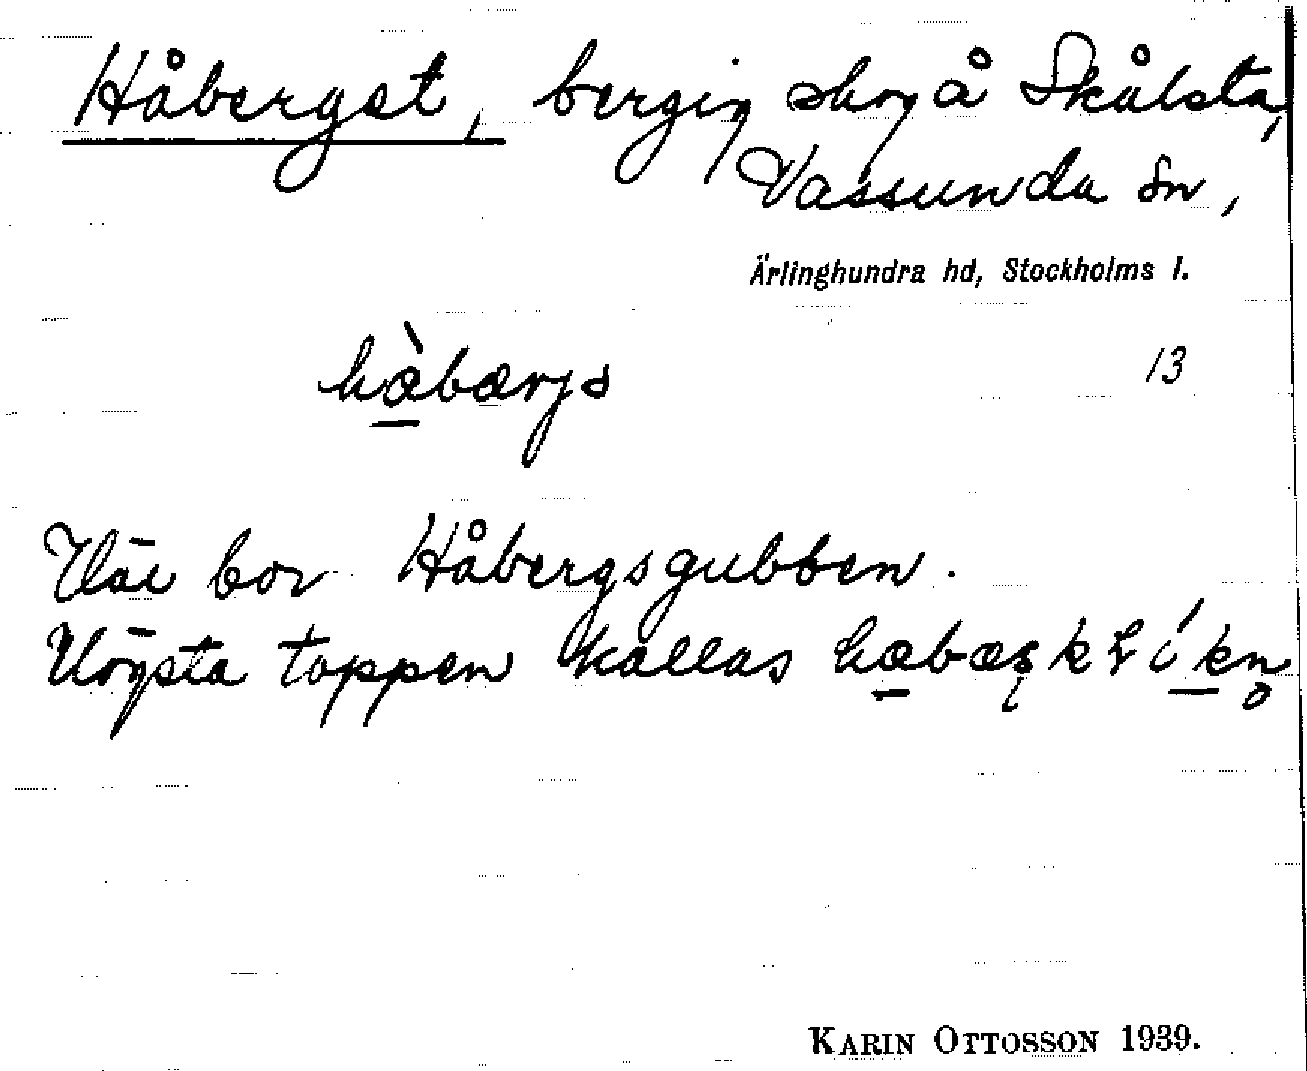 Håberget, bergig skog å Skålsta,
Vassunda sn,
Ärlinghundra hd, Stockholms l.
hæ̀bærjs
13
Där bor Håbergsgubben.
Högsta toppen kallas
Karin Ottosson 1939.